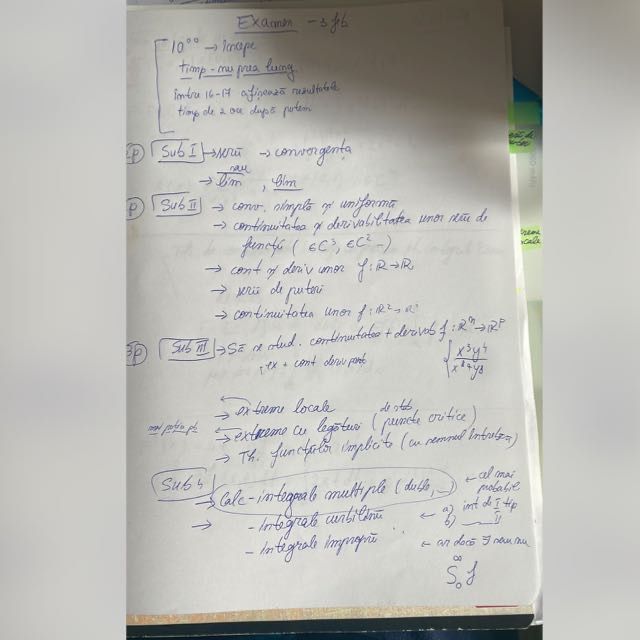 Examen - 3 feb
10⁰⁰ → începe
timp - nu prea lung
între 16-17 afișează rezultatele
timp de 2 ore după putem
p) Sub I → serii → convergența
sau
→ lim, lim
p) Sub II → conv. simplă și uniformă
→ continuitatea și derivabilitatea unor serii de
funcții (∈C³, ∈C² -)
→ cont și deriv unor f: R→R
→ serii de puteri
→ continuitatea unor f: R²→R
3p) Sub III → Să se stud. continuitatea + derivab f: Rᵐ→Rᵖ
ex + cont deriv part
x³y⁴
x⁸+y⁸
→ extreme locale
de stab
mai puțin pb → extreme cu legături (puncte critice)
→ Th. funcțiilor implicite (cu semnul întrebării)
Sub 4
→ Calc - integrale multiple (duble, ...) ← cel mai probabil
→ - Integrale curbilinii ← a) int de I tip
b) — II
- Integrale improprii ← ar dacă ∃ sau nu
∫₀^∞ f